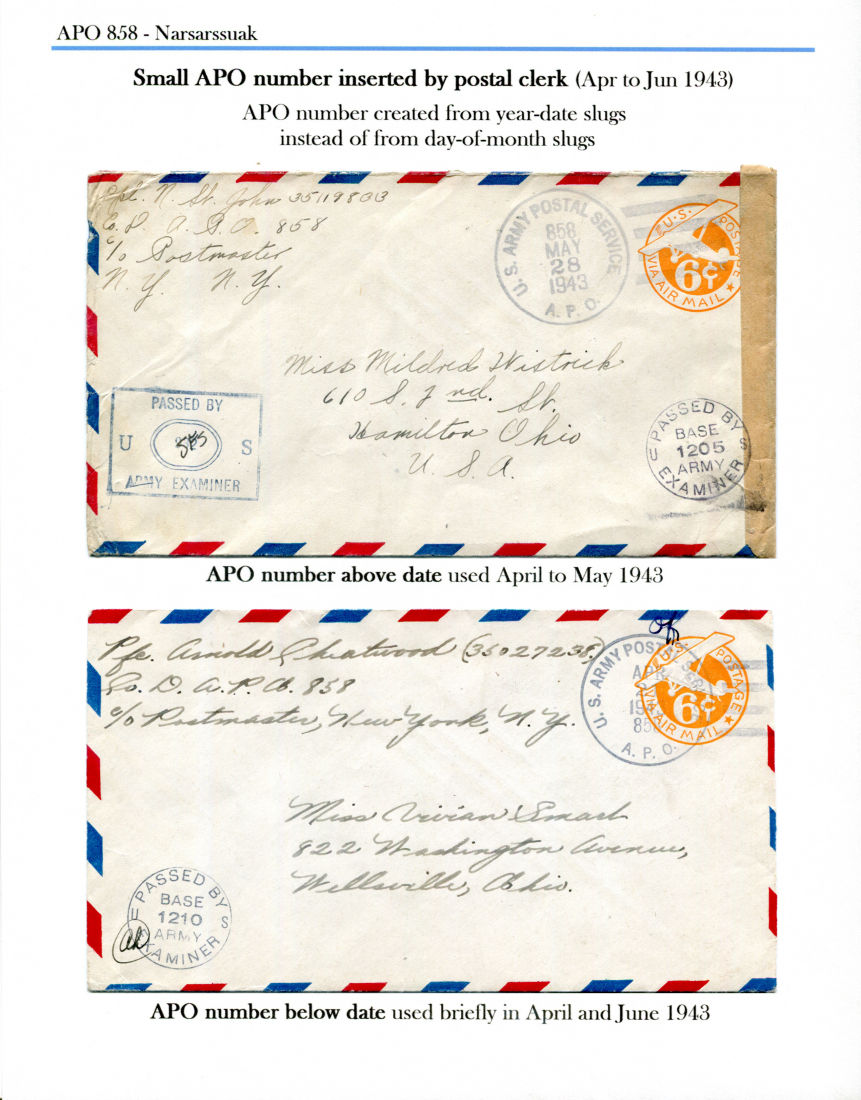 APO 858 - Narsarssuak
Small APO number inserted by postal clerk (Apr to Jun 1943)
APO number created from year-date slugs
instead of from day-of-month slugs
Cpl. N. St. John 35119803
A. P. O. 858
c/o Postmaster
N. Y. N. Y.
U. S. ARMY POSTAL SERVICE
858
MAY
28
1943
A. P. O.
U.S. POSTAGE
6¢
VIA AIR MAIL
Miss Mildred Wistrick
610 S. 2nd. St.
Hamilton Ohio
U. S. A.
PASSED BY
U S
ARMY EXAMINER
PASSED BY
BASE
1205
ARMY
EXAMINER
U S
APO number above date used April to May 1943
Pfc. Arnold Cheatwood (35027235)
Co. D. A.P.O. 858
c/o Postmaster, New York, N.Y.
U. S. ARMY POST
APR
A. P. O.
U.S. POSTAGE
6¢
VIA AIR MAIL
Miss Vivian Smart
822 Washington Avenue,
Wellsville, Ohio.
PASSED BY
BASE
1210
ARMY
EXAMINER
U S
APO number below date used briefly in April and June 1943